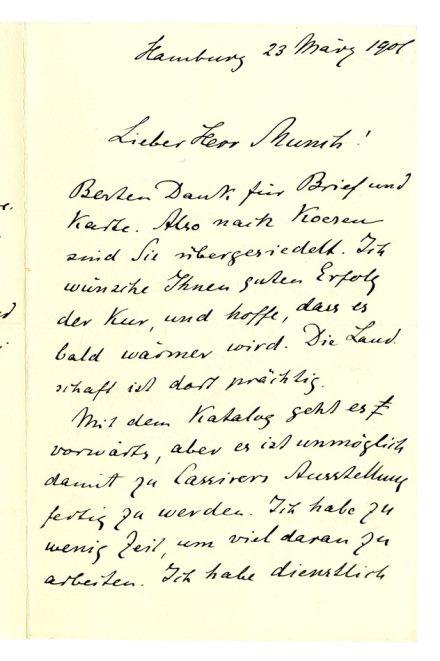 Hamburg 23 März 1906
Lieber Herr Munch!
Besten Dank für Brief und
Karte. Also nach Koesen
sind Sie übergesiedelt. Ich
wünsche Ihnen guten Erfolg
der Kur, und hoffe, dass es
bald wärmer wird. Die Land
schaft ist dort prächtig.
Mit dem Katalog geht es
vorwärts, aber es ist unmöglich
damit zu Cassirers Ausstellung
fertig zu werden. Ich habe zu
wenig Zeit, um viel daran zu
arbeiten. Ich habe dienstlich